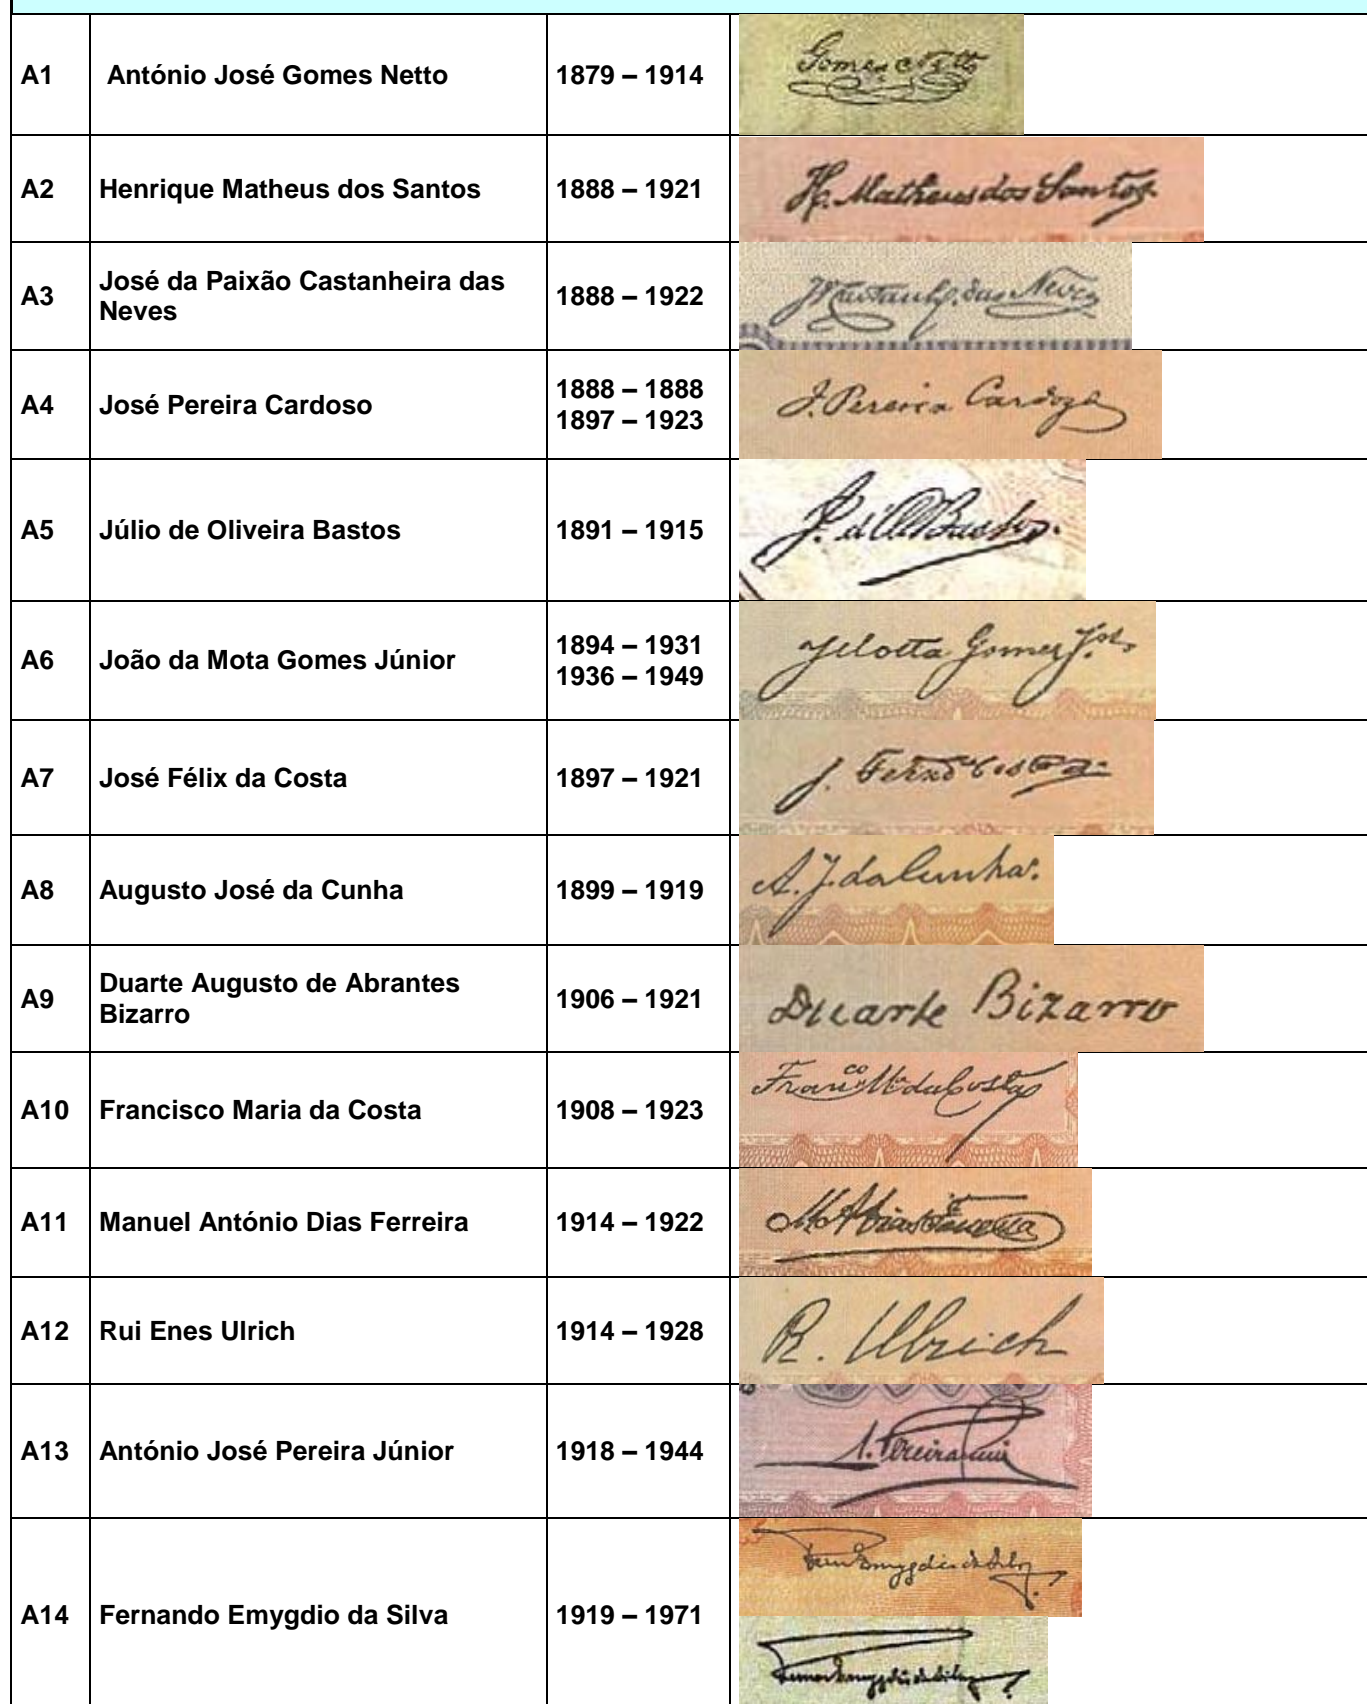 A1 António José Gomes Netto 1879 – 1914 Gomes e Netto
A2 Henrique Matheus dos Santos 1888 – 1921 H. Matheus dos Santos
A3 José da Paixão Castanheira das Neves 1888 – 1922 das Neves
A4 José Pereira Cardoso 1888 – 1888 1897 – 1923 J. Pereira Cardozo
A5 Júlio de Oliveira Bastos 1891 – 1915 J. d'O. Bastos
A6 João da Mota Gomes Júnior 1894 – 1931 1936 – 1949 JMotta Gomes Jor
A7 José Félix da Costa 1897 – 1921 J. Costa
A8 Augusto José da Cunha 1899 – 1919 A. J. da Cunha.
A9 Duarte Augusto de Abrantes Bizarro 1906 – 1921 Duarte Bizarro
A10 Francisco Maria da Costa 1908 – 1923 Franco Ma da Costa
A11 Manuel António Dias Ferreira 1914 – 1922 M A Dias Ferreira
A12 Rui Enes Ulrich 1914 – 1928 R. Ulrich
A13 António José Pereira Júnior 1918 – 1944 A. Pereira
A14 Fernando Emygdio da Silva 1919 – 1971 Emygdio da Silva